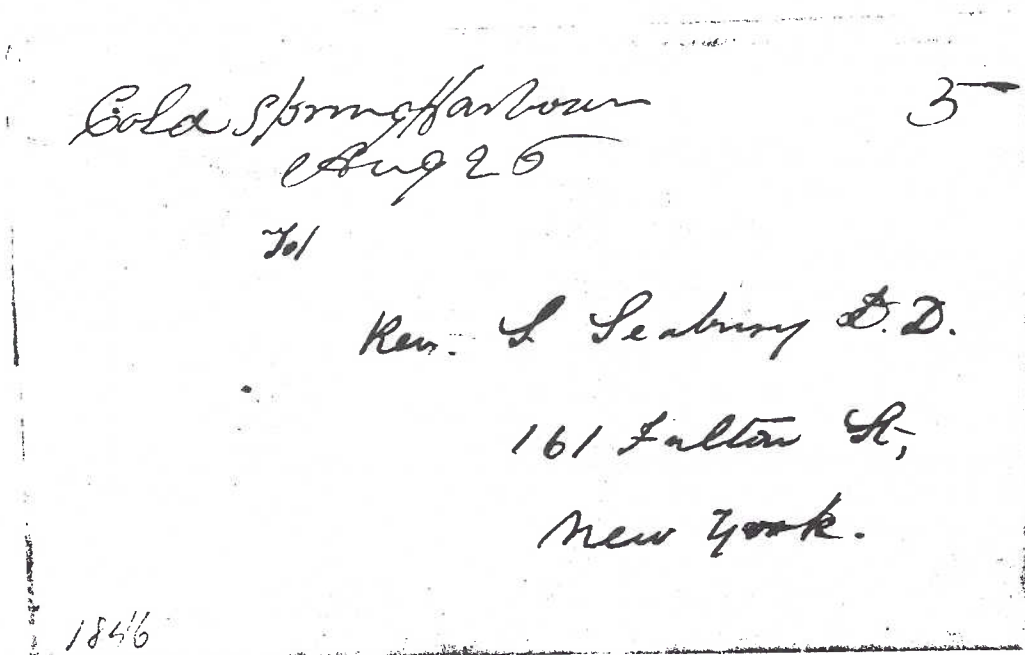 Cold Spring Harbour 5
Aug 25
To/
Rev. S Seabury D.D.
161 Fulton St,
New York.
1846